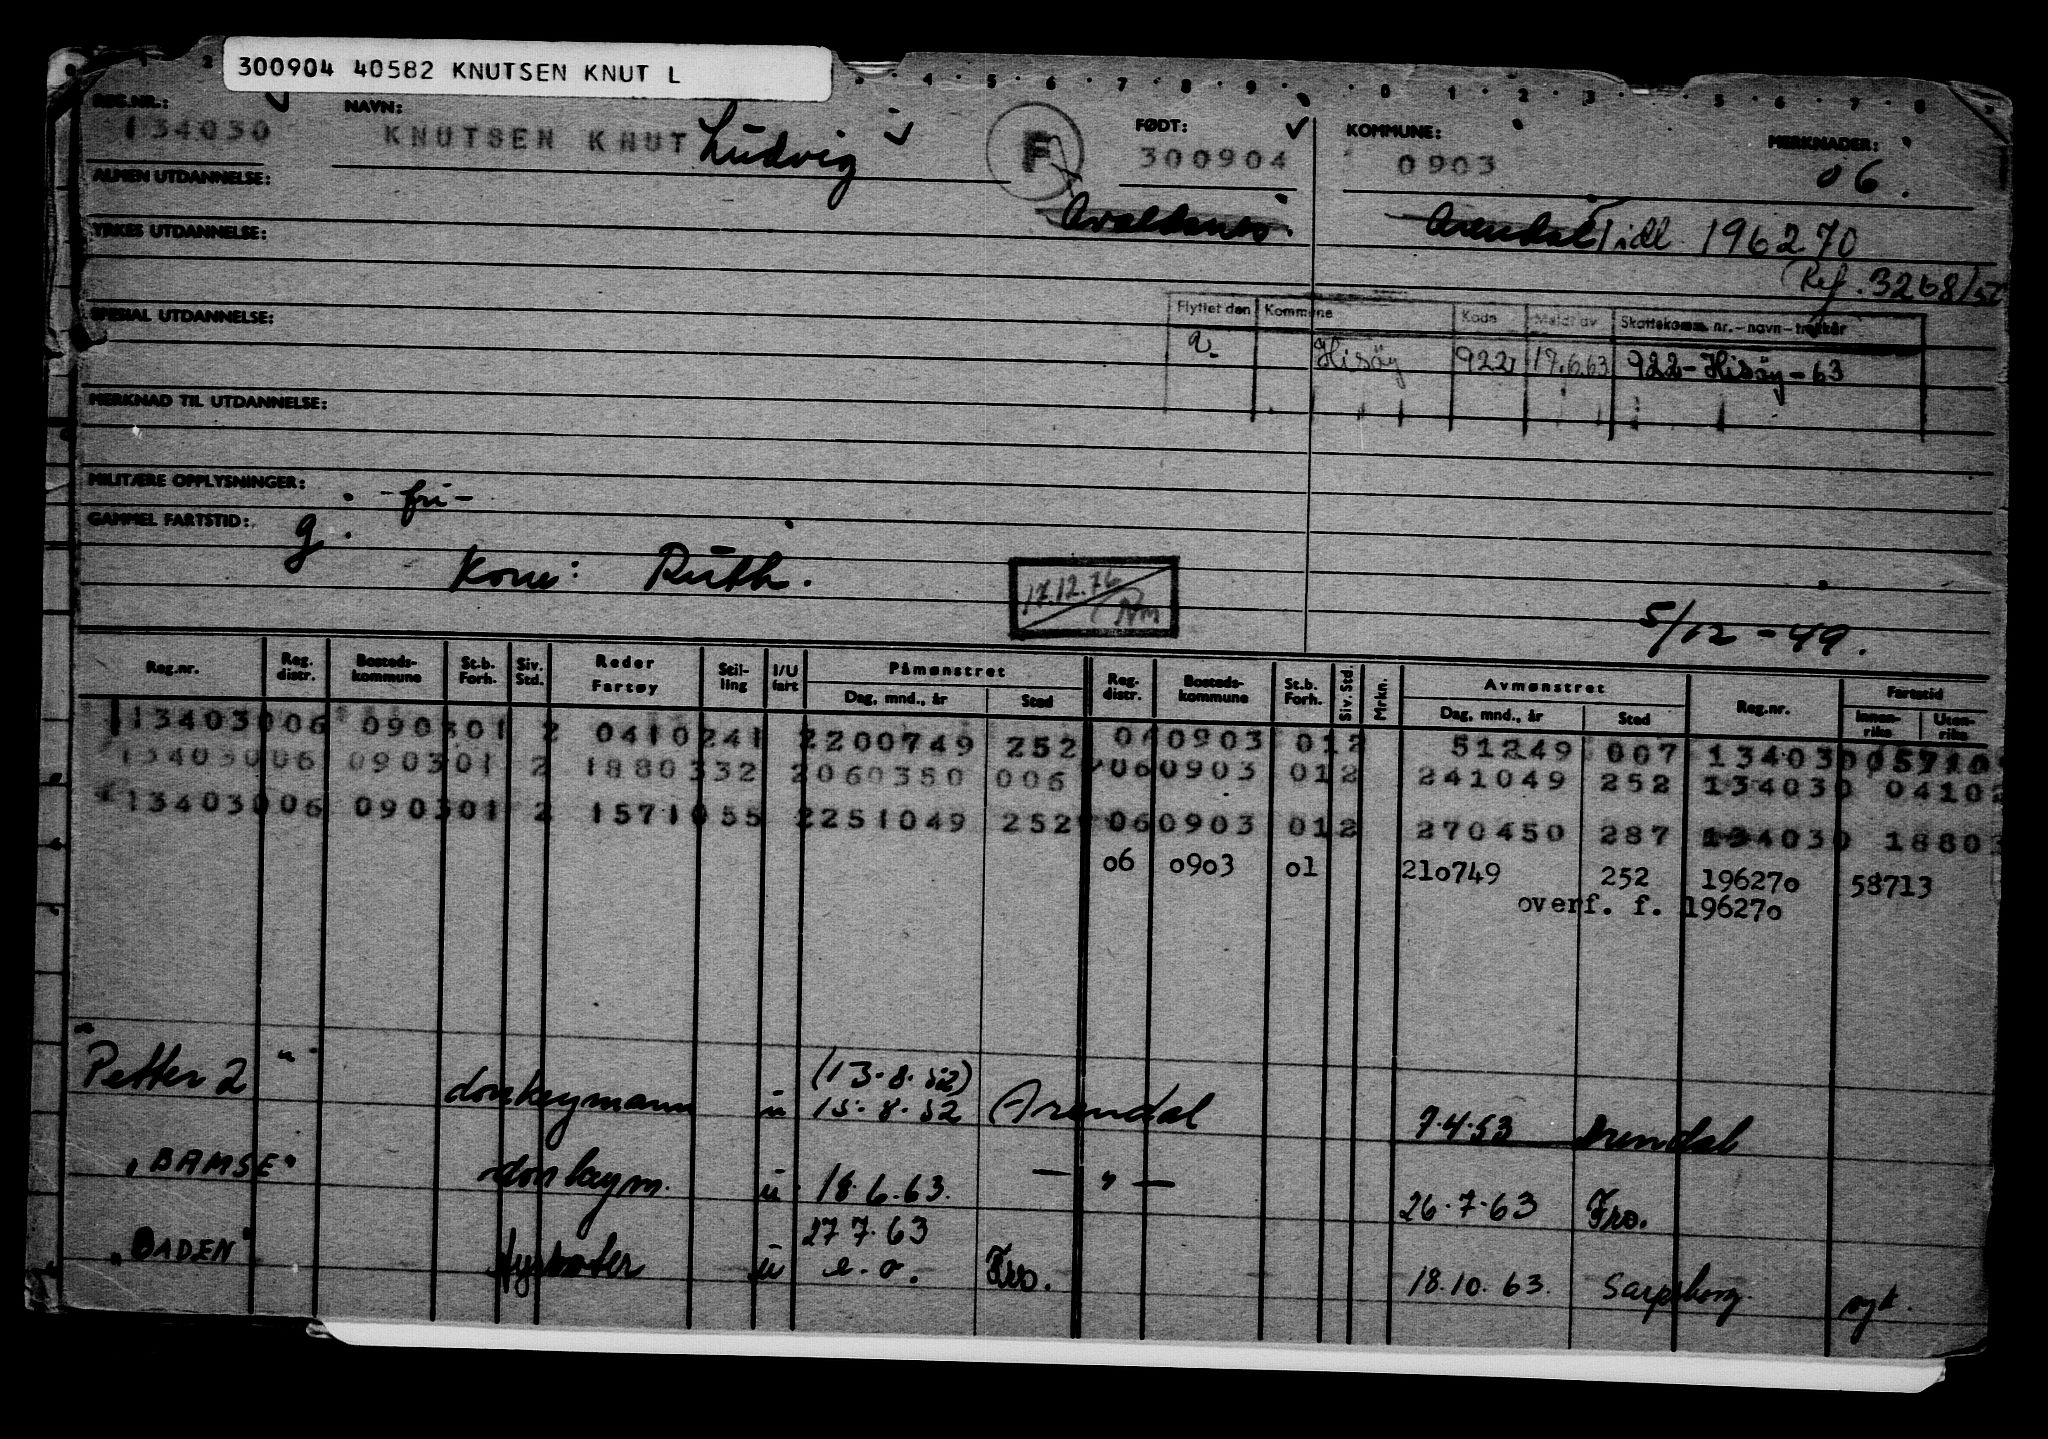 300904 40582 KNUTSEN KNUT L
REG.NR.: NAVN: FØDT: KOMMUNE: MERKNADER:
134030 KNUTSEN KNUT Ludvig F 300904 0903 06.
ALMEN UTDANNELSE:
Arendal Tidl. 196270
YRKES UTDANNELSE:
(Ref. 3268/52
Flyttet den Kommune Kode Meldt av Skattekomm. nr.-navn-trekkår
SPESIAL UTDANNELSE:
Hisøy 922 17.6.63 922-Hisøy-63
MERKNAD TIL UTDANNELSE:
MILITÆRE OPPLYSNINGER: -fri-
GAMMEL FARTSTID: g.
Kone: Ruth.
17.12.76
5/12-49.
Reg.nr. Reg. distr. Bosteds-kommune St.b. Forh. Siv. Std. Reder Fartøy Stil-ling I/U fart Påmønstret Dag, mnd., år Sted Reg. distr. Bosteds-kommune St.b. Forh. Siv. Std. Mrkn. Avmønstret Dag, mnd., år Sted Reg.nr. Fartstid Innen-riks Uten-riks
134030 06 0903 01 2 0410241 2200749 252 06 0903 01 2 51249 007 134030 05710
134030 06 0903 01 2 1880332 2060350 006 06 0903 01 2 241049 252 134030 04102
134030 06 0903 01 2 1571055 2251049 252 06 0903 01 2 270450 287 134030 18803
06 0903 01 210749 252 196270 58713
overf. f. 196270
"Petter 2" donkeymann u (13.8.52)
15.8.52 Arendal 7.4.53 Arendal
"BAMSE" donkeym. u 18.6.63. — " — 26.7.63 Fro.
"BADEN" fyrbøter u 27.7.63
e.o. Fro. 18.10.63. Sarpsborg. syk.